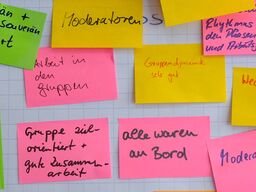 än +
souverän
rt
Moderatoren
Rhythmus
den Pausen
und
Arbeit
in
den
gruppen
Gruppendynamik
sehr gut
We
Gruppe ziel-
orientiert +
gute Zusammen-
arbeit
alle waren
an Bord
Modera